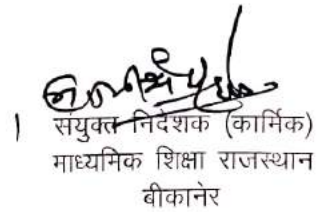 । संयुक्त निदेशक (कार्मिक)
माध्यमिक शिक्षा राजस्थान
बीकानेर